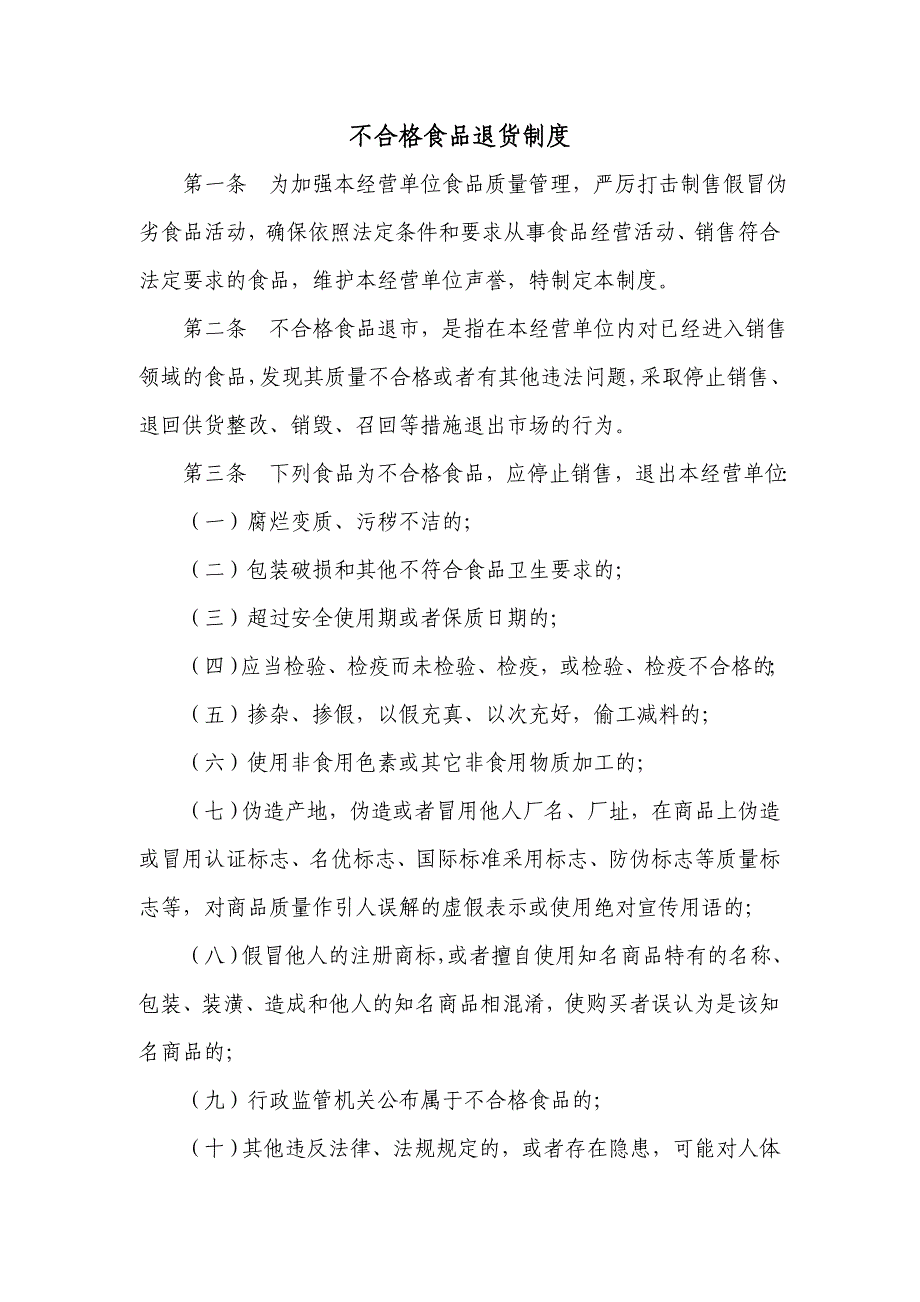 不合格食品退货制度
第一条　为加强本经营单位食品质量管理，严厉打击制售假冒伪
劣食品活动，确保依照法定条件和要求从事食品经营活动、销售符合
法定要求的食品，维护本经营单位声誉，特制定本制度。
第二条　不合格食品退市，是指在本经营单位内对已经进入销售
领域的食品，发现其质量不合格或者有其他违法问题，采取停止销售、
退回供货整改、销毁、召回等措施退出市场的行为。
第三条　下列食品为不合格食品，应停止销售，退出本经营单位：
（一）腐烂变质、污秽不洁的；
（二）包装破损和其他不符合食品卫生要求的；
（三）超过安全使用期或者保质日期的；
（四）应当检验、检疫而未检验、检疫，或检验、检疫不合格的；
（五）掺杂、掺假，以假充真、以次充好，偷工减料的；
（六）使用非食用色素或其它非食用物质加工的；
（七）伪造产地，伪造或者冒用他人厂名、厂址，在商品上伪造
或冒用认证标志、名优标志、国际标准采用标志、防伪标志等质量标
志等，对商品质量作引人误解的虚假表示或使用绝对宣传用语的；
（八）假冒他人的注册商标，或者擅自使用知名商品特有的名称、
包装、装潢、造成和他人的知名商品相混淆，使购买者误认为是该知
名商品的；
（九）行政监管机关公布属于不合格食品的；
（十）其他违反法律、法规规定的，或者存在隐患，可能对人体